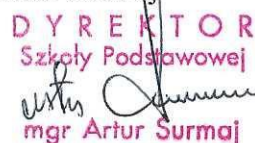 DYREKTOR
Szkoły Podstawowej
mgr Artur Surmaj